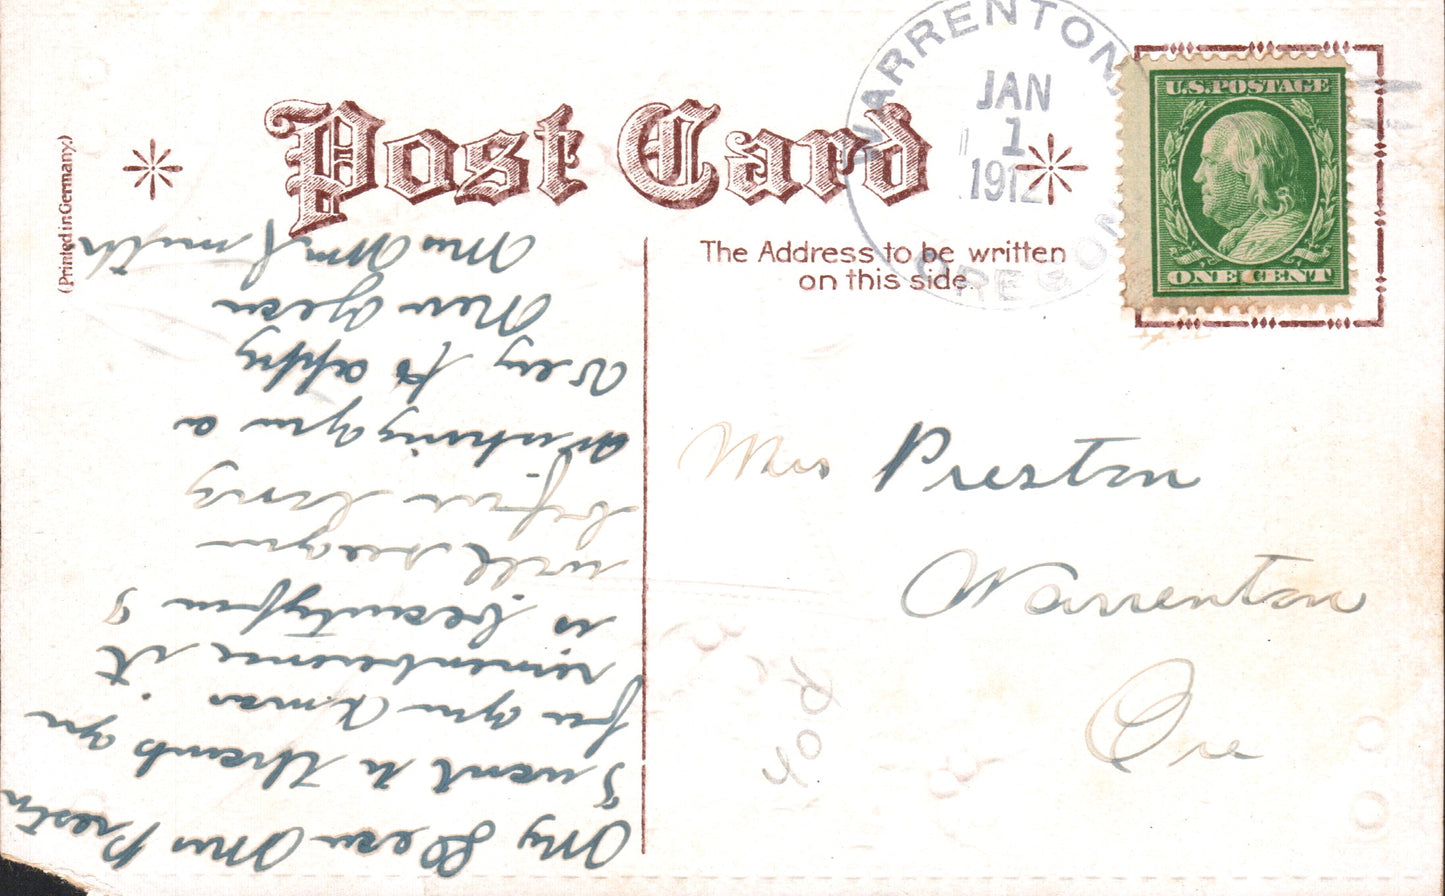 Post Card
(Printed in Germany.)
The Address to be written
on this side.
WARRENTON,
JAN
1
1912
OREGON
U.S. POSTAGE
ONE CENT
Mrs Preston
Warrenton
Ore
My Dear Mrs Preston
I want to thank you
for your Xmas
rememberence it
is beautyfun I
will see you
before long
wishing you a
Very Happy
New Year
Mrs Wm Smith